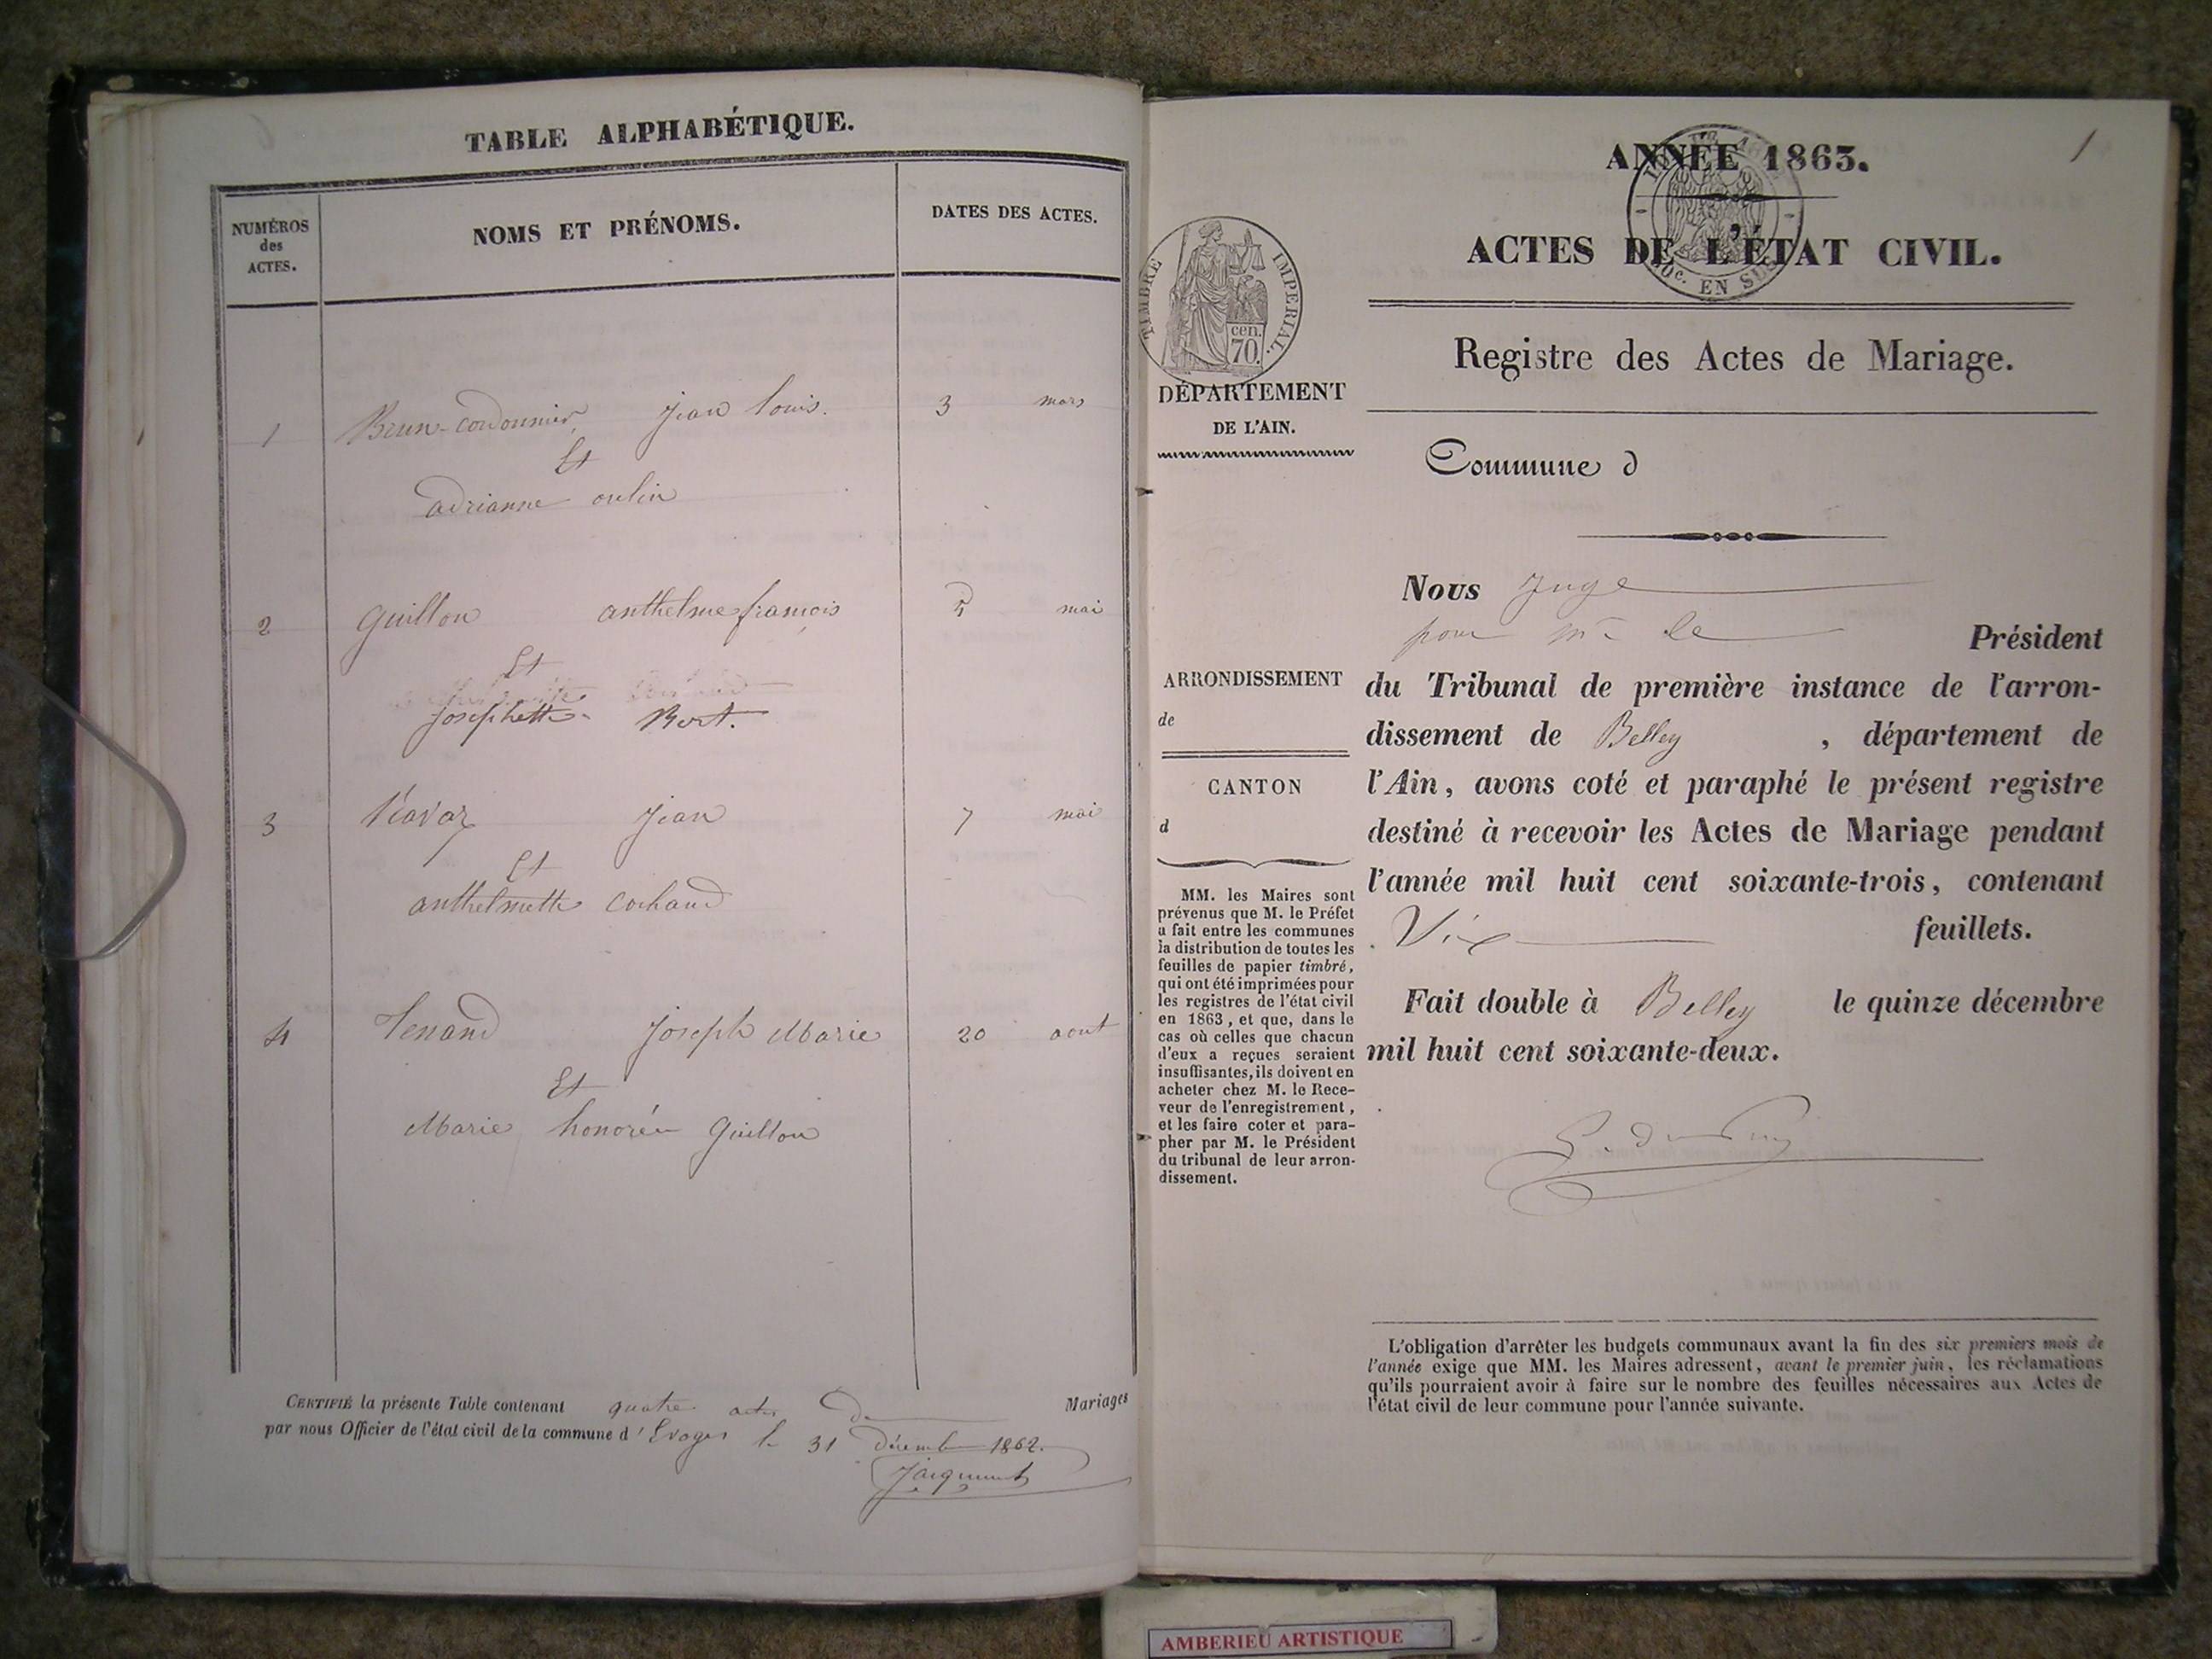 TABLE ALPHABÉTIQUE.
NUMÉROS
des
ACTES.
NOMS ET PRÉNOMS.
DATES DES ACTES.
1 Brun-cordonnier, jean louis. 3 mars
Et
adrianne oulin
2 Guillon anthelme françois 5 mai
Et
josephette Bort.
3 jean 7 mai
Et
anthelmette cochand
4 Tenand joseph Marie 20 aout
Et
Marie honorée Guillon
CERTIFIÉ la présente Table contenant quatre actes De Mariages
par nous Officier de l'état civil de la commune d'Evoges le 31 décembre 1862.
Jacquemet
1
ANNÉE 1863.
ACTES DE L'ÉTAT CIVIL.
EN SUS
Registre des Actes de Mariage.
TIMBRE IMPERIAL.
cen.
70.
DÉPARTEMENT
DE L'AIN.
Commune d
Nous Juge
pour Mr le Président
du Tribunal de première instance de l'arron-
dissement de Belley , département de
l'Ain, avons coté et paraphé le présent registre
destiné à recevoir les Actes de Mariage pendant
l'année mil huit cent soixante-trois, contenant
feuillets.
Fait double à Belley le quinze décembre
mil huit cent soixante-deux.
ARRONDISSEMENT
de
CANTON
d
MM. les Maires sont
prévenus que M. le Préfet
a fait entre les communes
la distribution de toutes les
feuilles de papier timbré,
qui ont été imprimées pour
les registres de l'état civil
en 1863, et que, dans le
cas où celles que chacun
d'eux a reçues seraient
insuffisantes, ils doivent en
acheter chez M. le Rece-
veur de l'enregistrement,
et les faire coter et para-
pher par M. le Président
du tribunal de leur arron-
dissement.
L'obligation d'arrêter les budgets communaux avant la fin des six premiers mois de
l'année exige que MM. les Maires adressent, avant le premier juin, les réclamations
qu'ils pourraient avoir à faire sur le nombre des feuilles nécessaires aux Actes de
l'état civil de leur commune pour l'année suivante.
AMBERIEU ARTISTIQUE